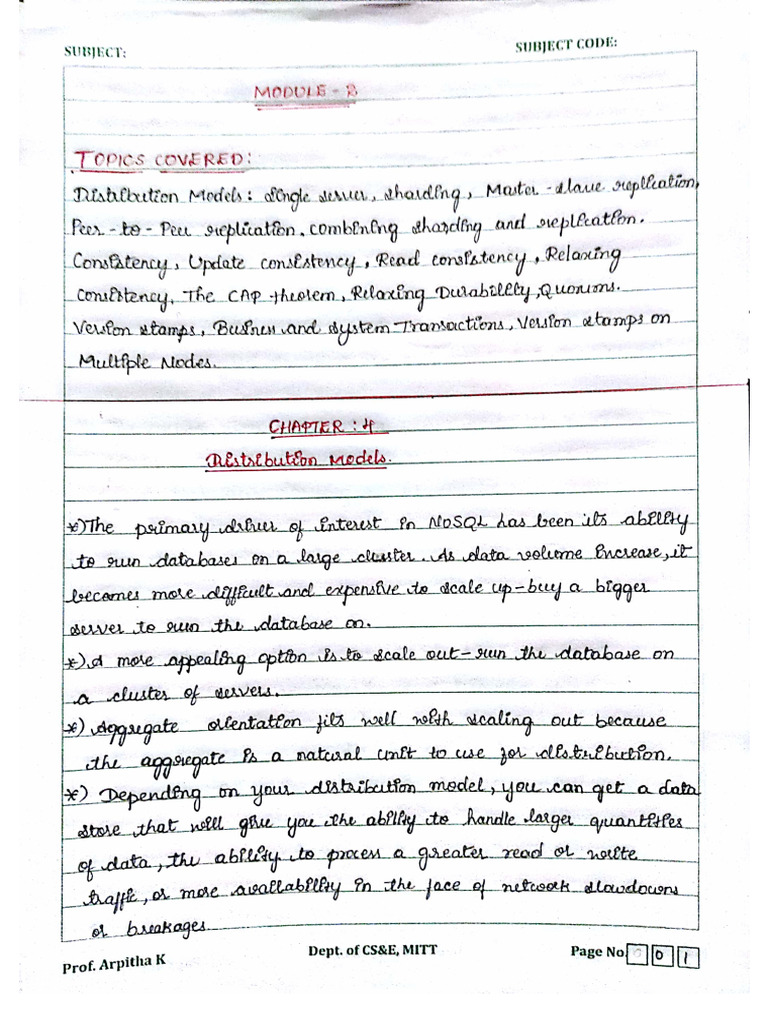 SUBJECT:
SUBJECT CODE:
MODULE - 2
TOPICS COVERED:
Distribution Models: Single server, sharding, Master-slave replication,
Peer-to-Peer replication, combining sharding and replication.
Consistency, Update consistency, Read consistency, Relaxing
consistency, The CAP theorem, Relaxing Durability, Quorums.
Version stamps, Business and system Transactions, Version stamps on
Multiple Nodes.
CHAPTER : 4
Distribution Models.
*) The primary driver of interest in NoSQL has been its ability
to run databases on a large cluster. As data volume increase, it
becomes more difficult and expensive to scale up - buy a bigger
server to run the database on.
*) A more appealing option is to scale out - run the database on
a cluster of servers.
*) Aggregate orientation fits well with scaling out because
the aggregate is a natural unit to use for distribution.
*) Depending on your distribution model, you can get a data
store that will give you the ability to handle larger quantities
of data, the ability to process a greater read or write
traffic, or more availability in the face of network slowdowns
or breakages.
Prof. Arpitha K
Dept. of CS&E, MITT
Page No. 0 0 1